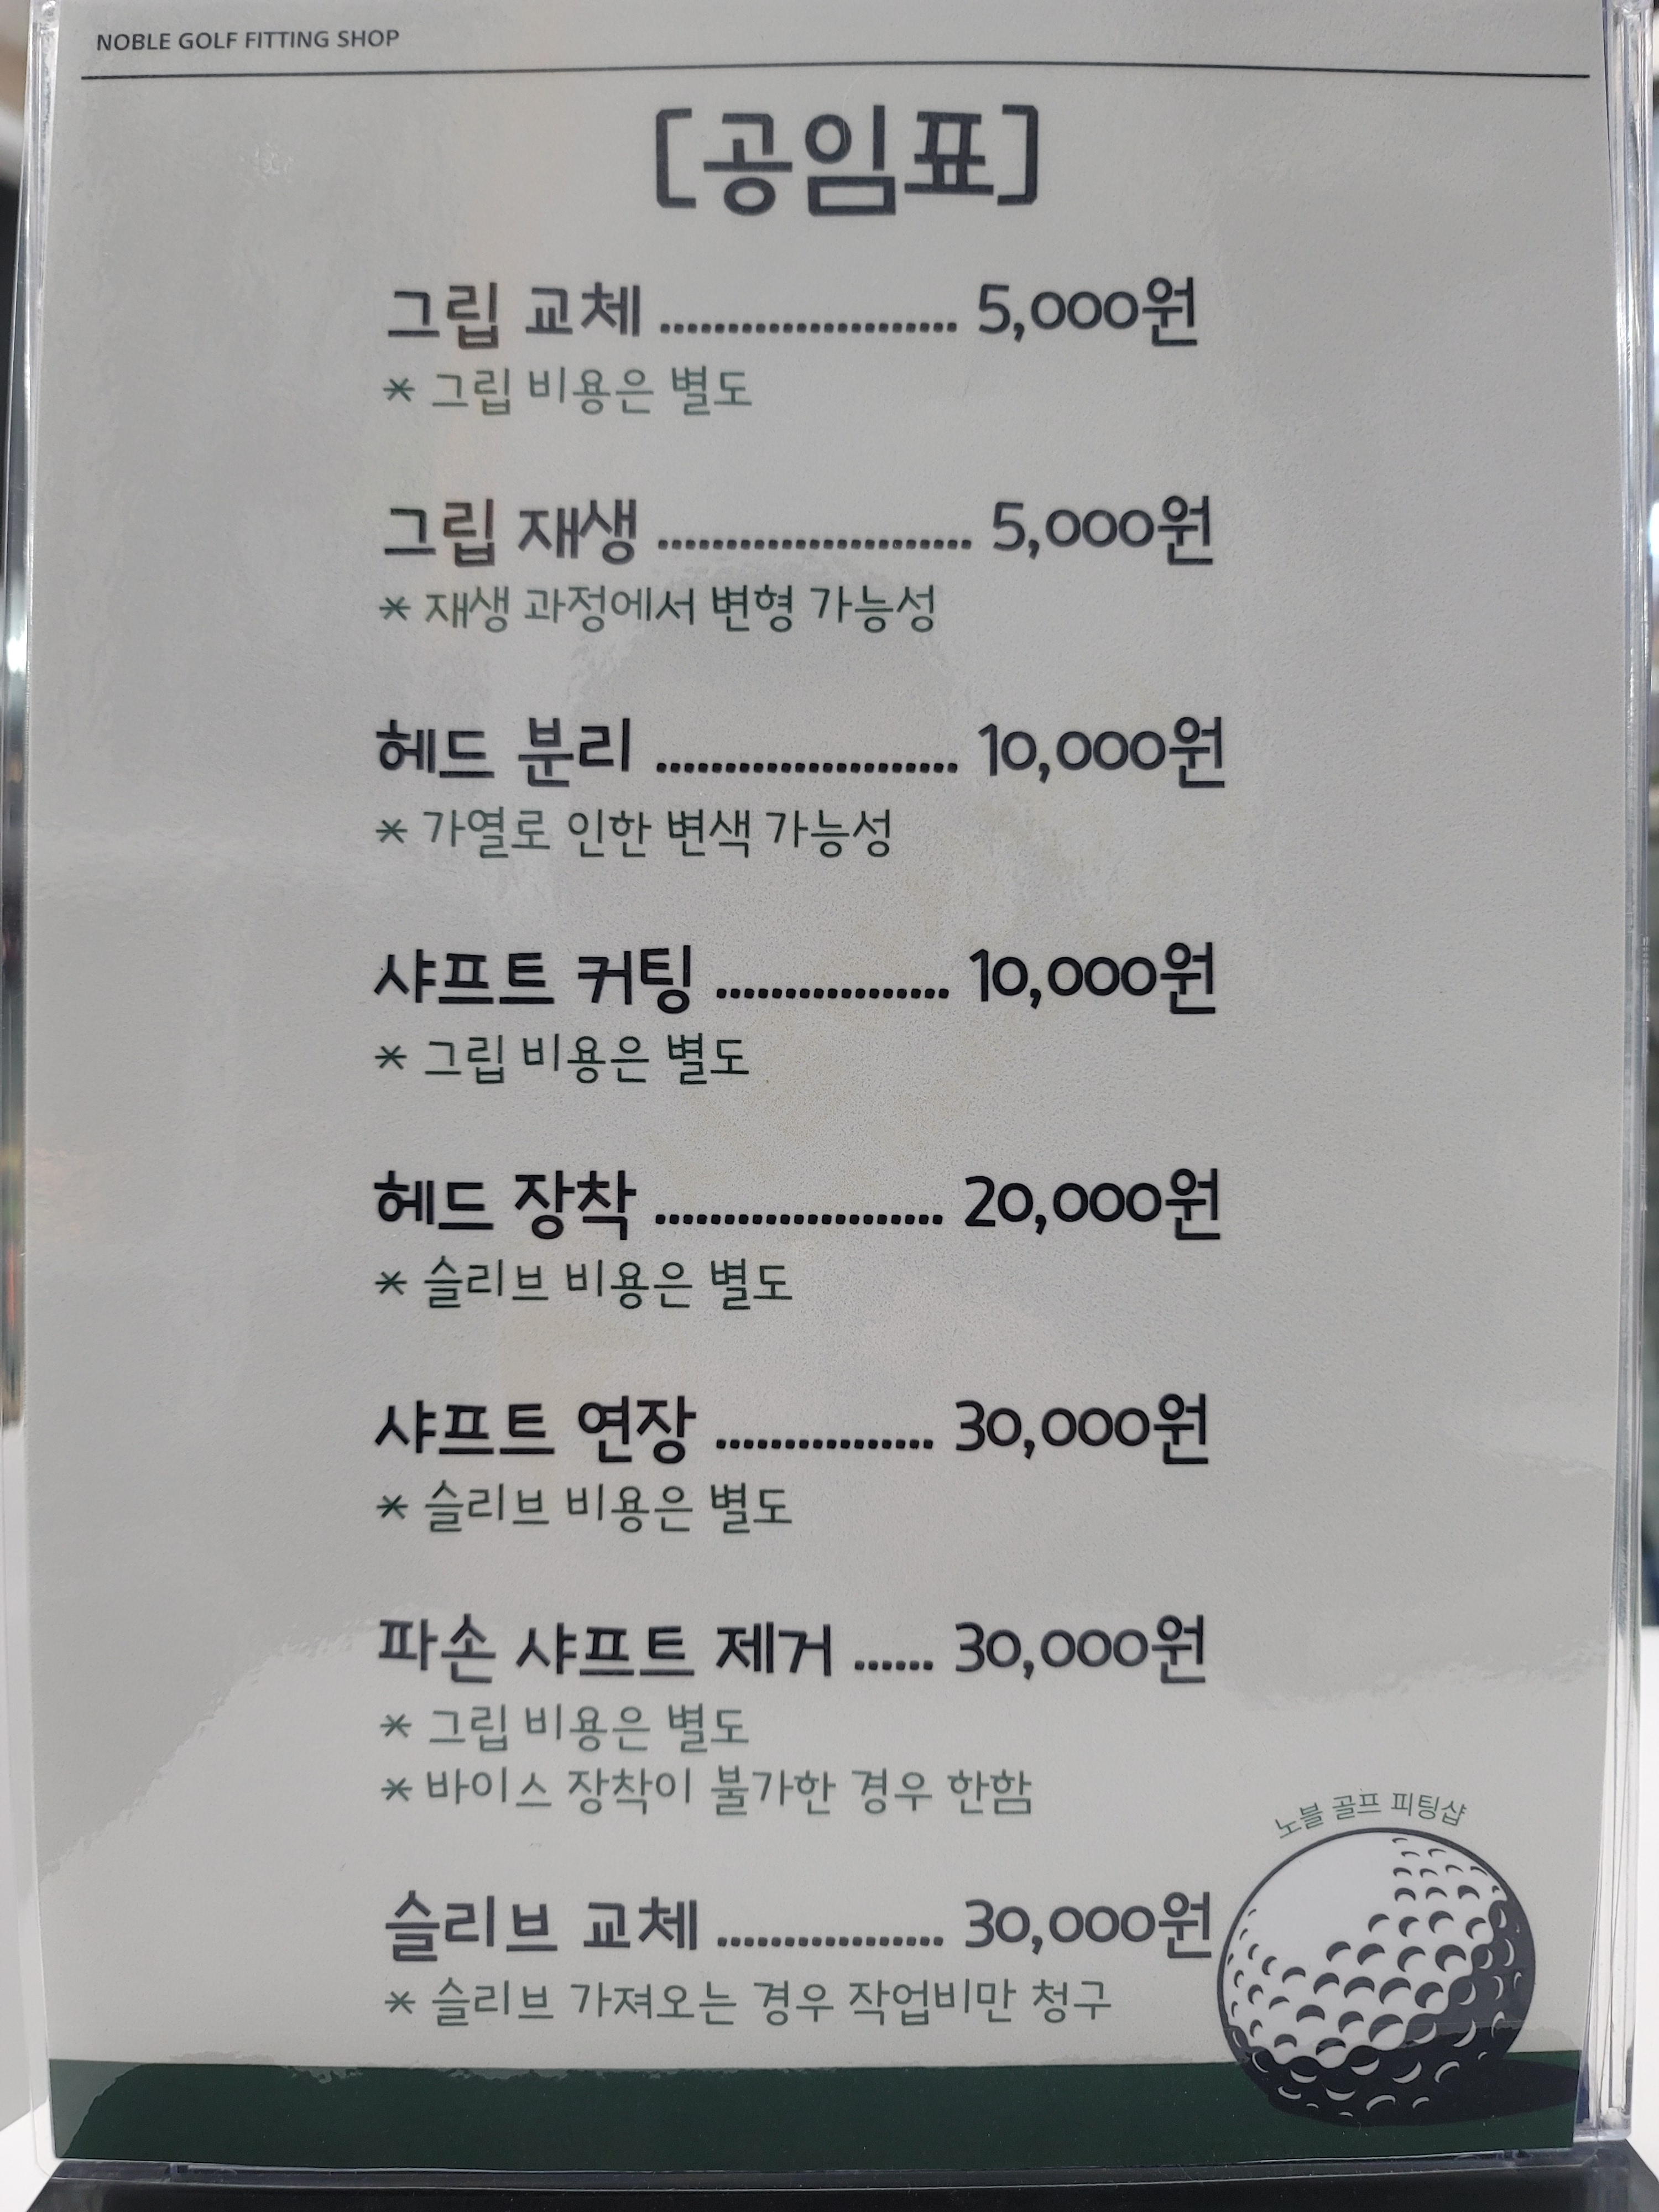 NOBLE GOLF FITTING SHOP
[공임표]
그립 교체 ...................... 5,000원
* 그립 비용은 별도
그립 재생 ....................... 5,000원
* 재생 과정에서 변형 가능성
헤드 분리 ...................... 10,000원
* 가열로 인한 변색 가능성
샤프트 커팅 ................. 10,000원
* 그립 비용은 별도
헤드 장착 ..................... 20,000원
* 슬리브 비용은 별도
샤프트 연장 ................ 30,000원
* 슬리브 비용은 별도
파손 샤프트 제거 ...... 30,000원
* 그립 비용은 별도
* 바이스 장착이 불가한 경우 한함
슬리브 교체 ................. 30,000원
* 슬리브 가져오는 경우 작업비만 청구
노블 골프 피팅샵